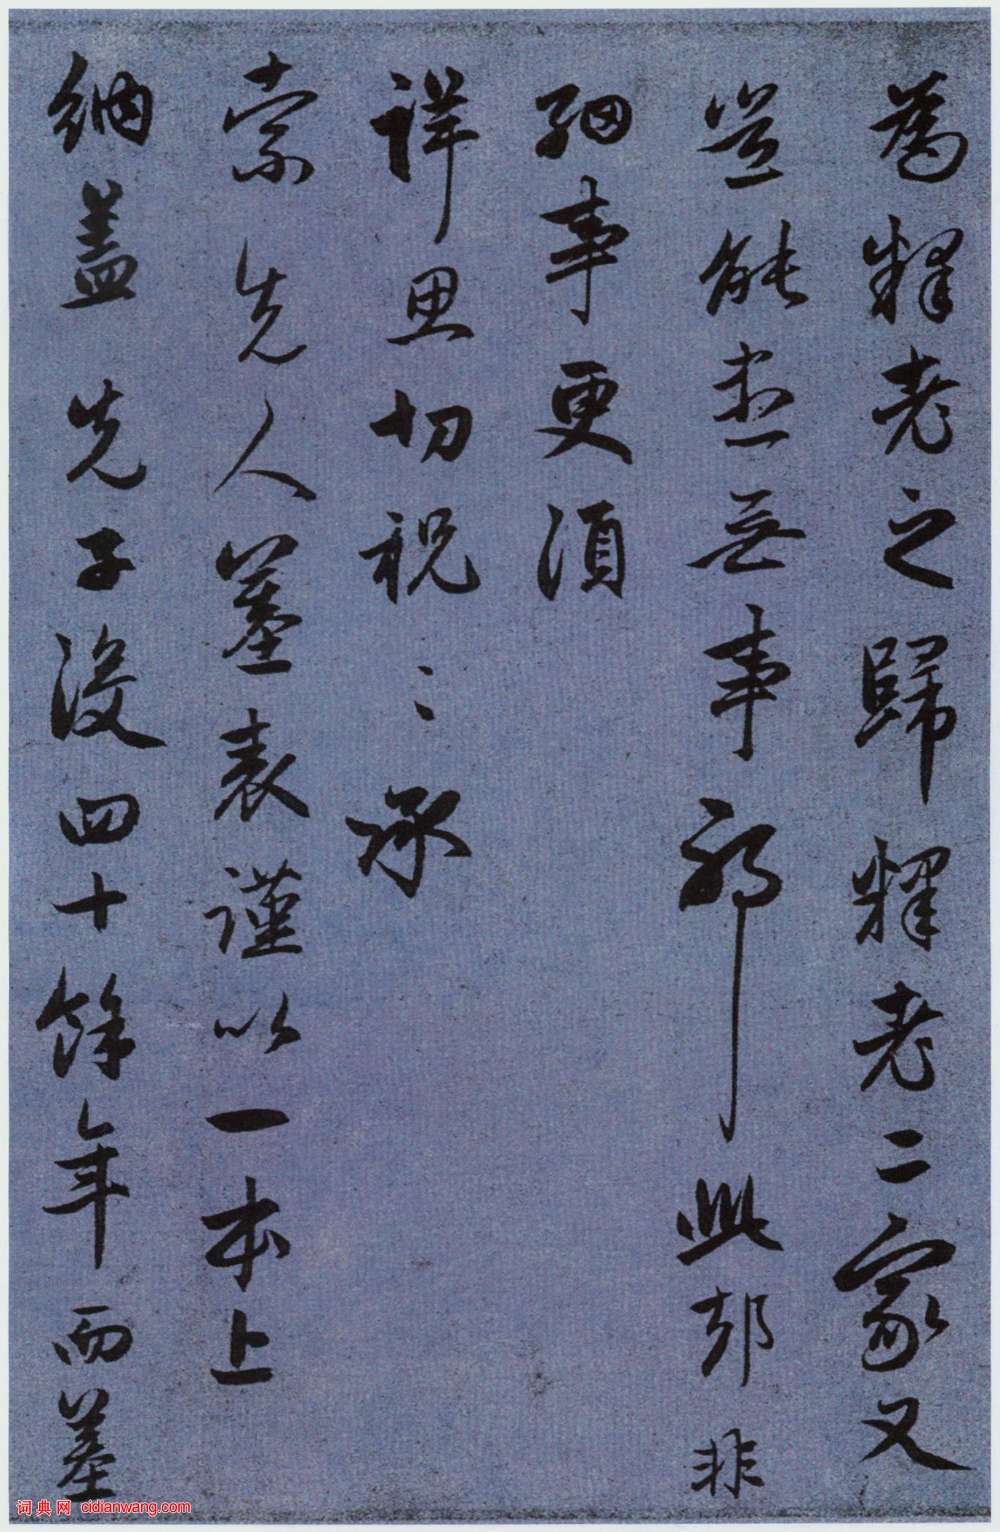 為釋老之歸釋老二家又
豈能惹無事耶此却非
細事更須
詳思切祝〻承
索先人墓表謹以一本上
納盖先子没四十餘年而墓
词典网 cidianwang.com